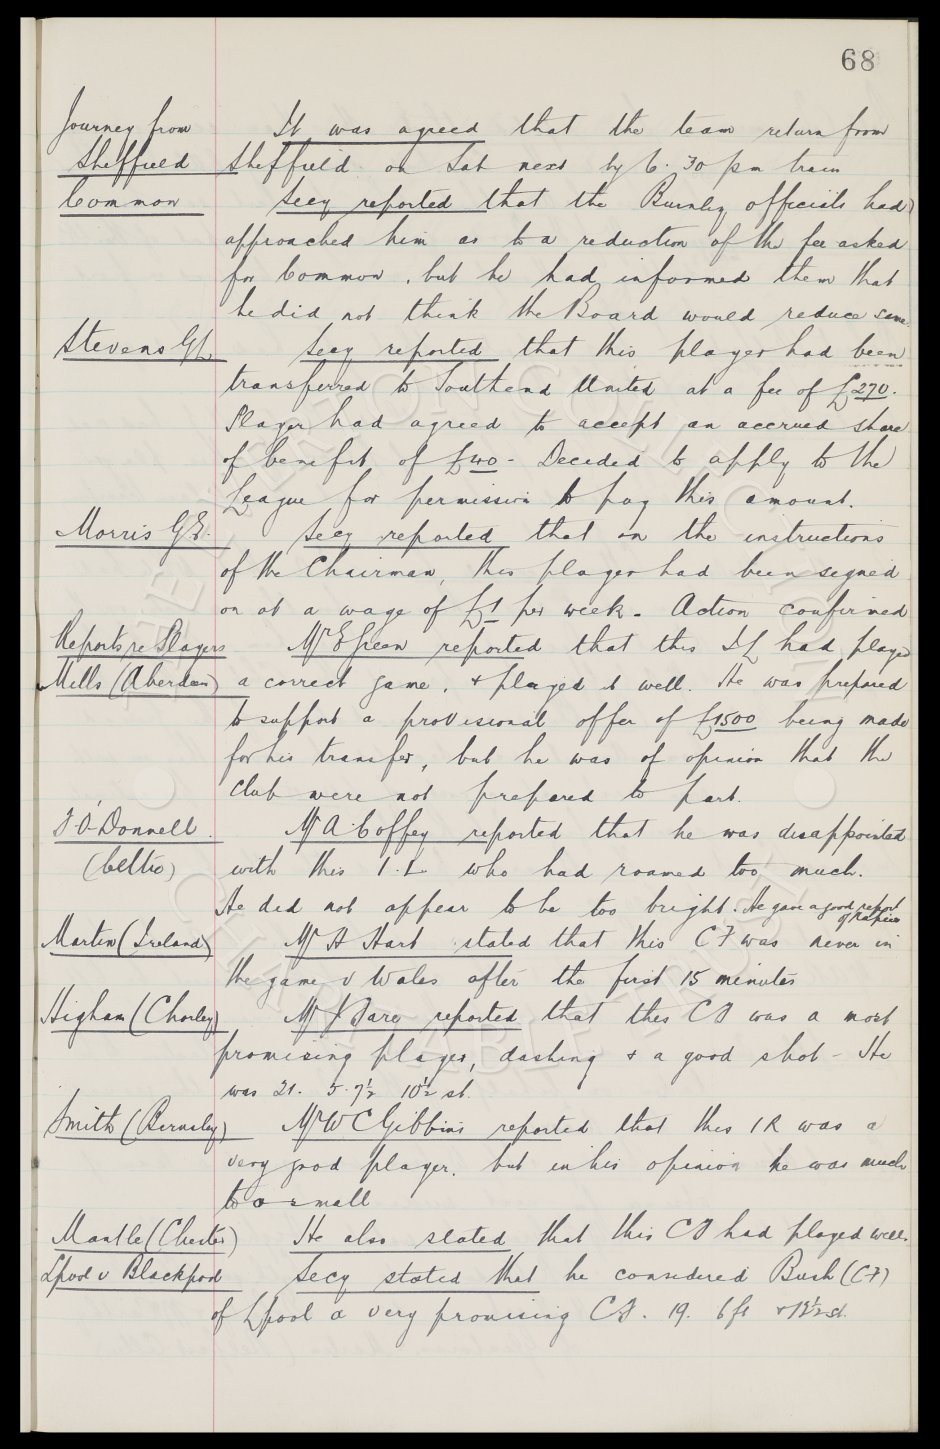 68
Journey from It was agreed that the team return from
Sheffield Sheffield on Sat next by 6.30 pm train
Common Secy reported that the Burnley officials had
approached him as to a reduction of the fee asked
for Common, but he had informed them that
he did not think the Board would reduce same.
Stevens GL Secy reported that this player had been
transferred to Southend United at a fee of £270.
Player had agreed to accept an accrued share
of benefit of £40 - Decided to apply to the
League for permission to pay this amount.
Morris GE. Secy reported that on the instructions
of the Chairman, this player had been signed
on at a wage of £1 per week - Action confirmed
Reports re Players Mr E Green reported that this IL had played
Mills (Aberdeen) a correct game, & played it well. He was prepared
to support a provisional offer of £1500 being made
for his transfer, but he was of opinion that the
Club were not prepared to part.
F O'Donnell. Mr A. Coffey reported that he was disappointed
(Celtic) with this I.L who had roamed too much.
He did not appear to be too bright. He gave a good report
of Napier
Martin (Ireland) Mr H Hart stated that this CF was never in
the game v Wales after the first 15 minutes
Higham (Chorley) Mr J Sare reported that this CF was a most
promising player, dashing & a good shot - He
was 21. 5.7½ 10½ st.
Smith (Burnley) Mr W C Gibbins reported that this IR was a
very good player, but in his opinion he was much
too small
Mantle (Chester) He also stated that this CF had played well.
Lpool v Blackpool Secy stated that he considered Bush (CF)
of Lpool a very promising CF. 19. 6ft & 12½ st.